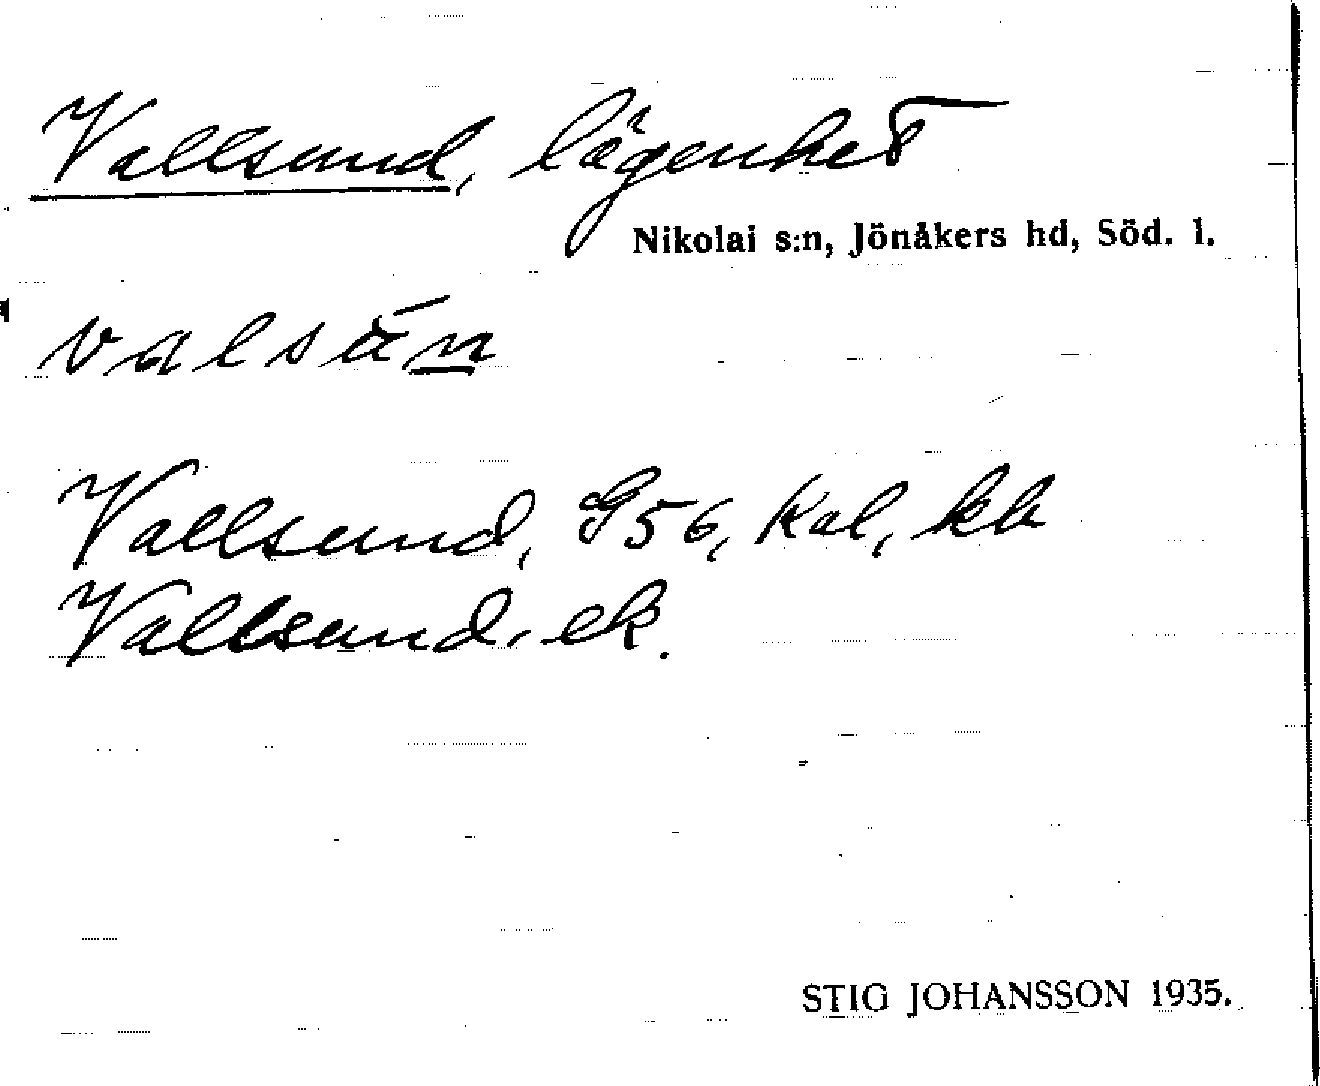 Vallsund, lägenhet
Nikolai s:n, Jönåkers hd, Söd. l.
valsún
Vallsund, G56, Kal, kb
Vallsund, ek.
STIG JOHANSSON 1935.